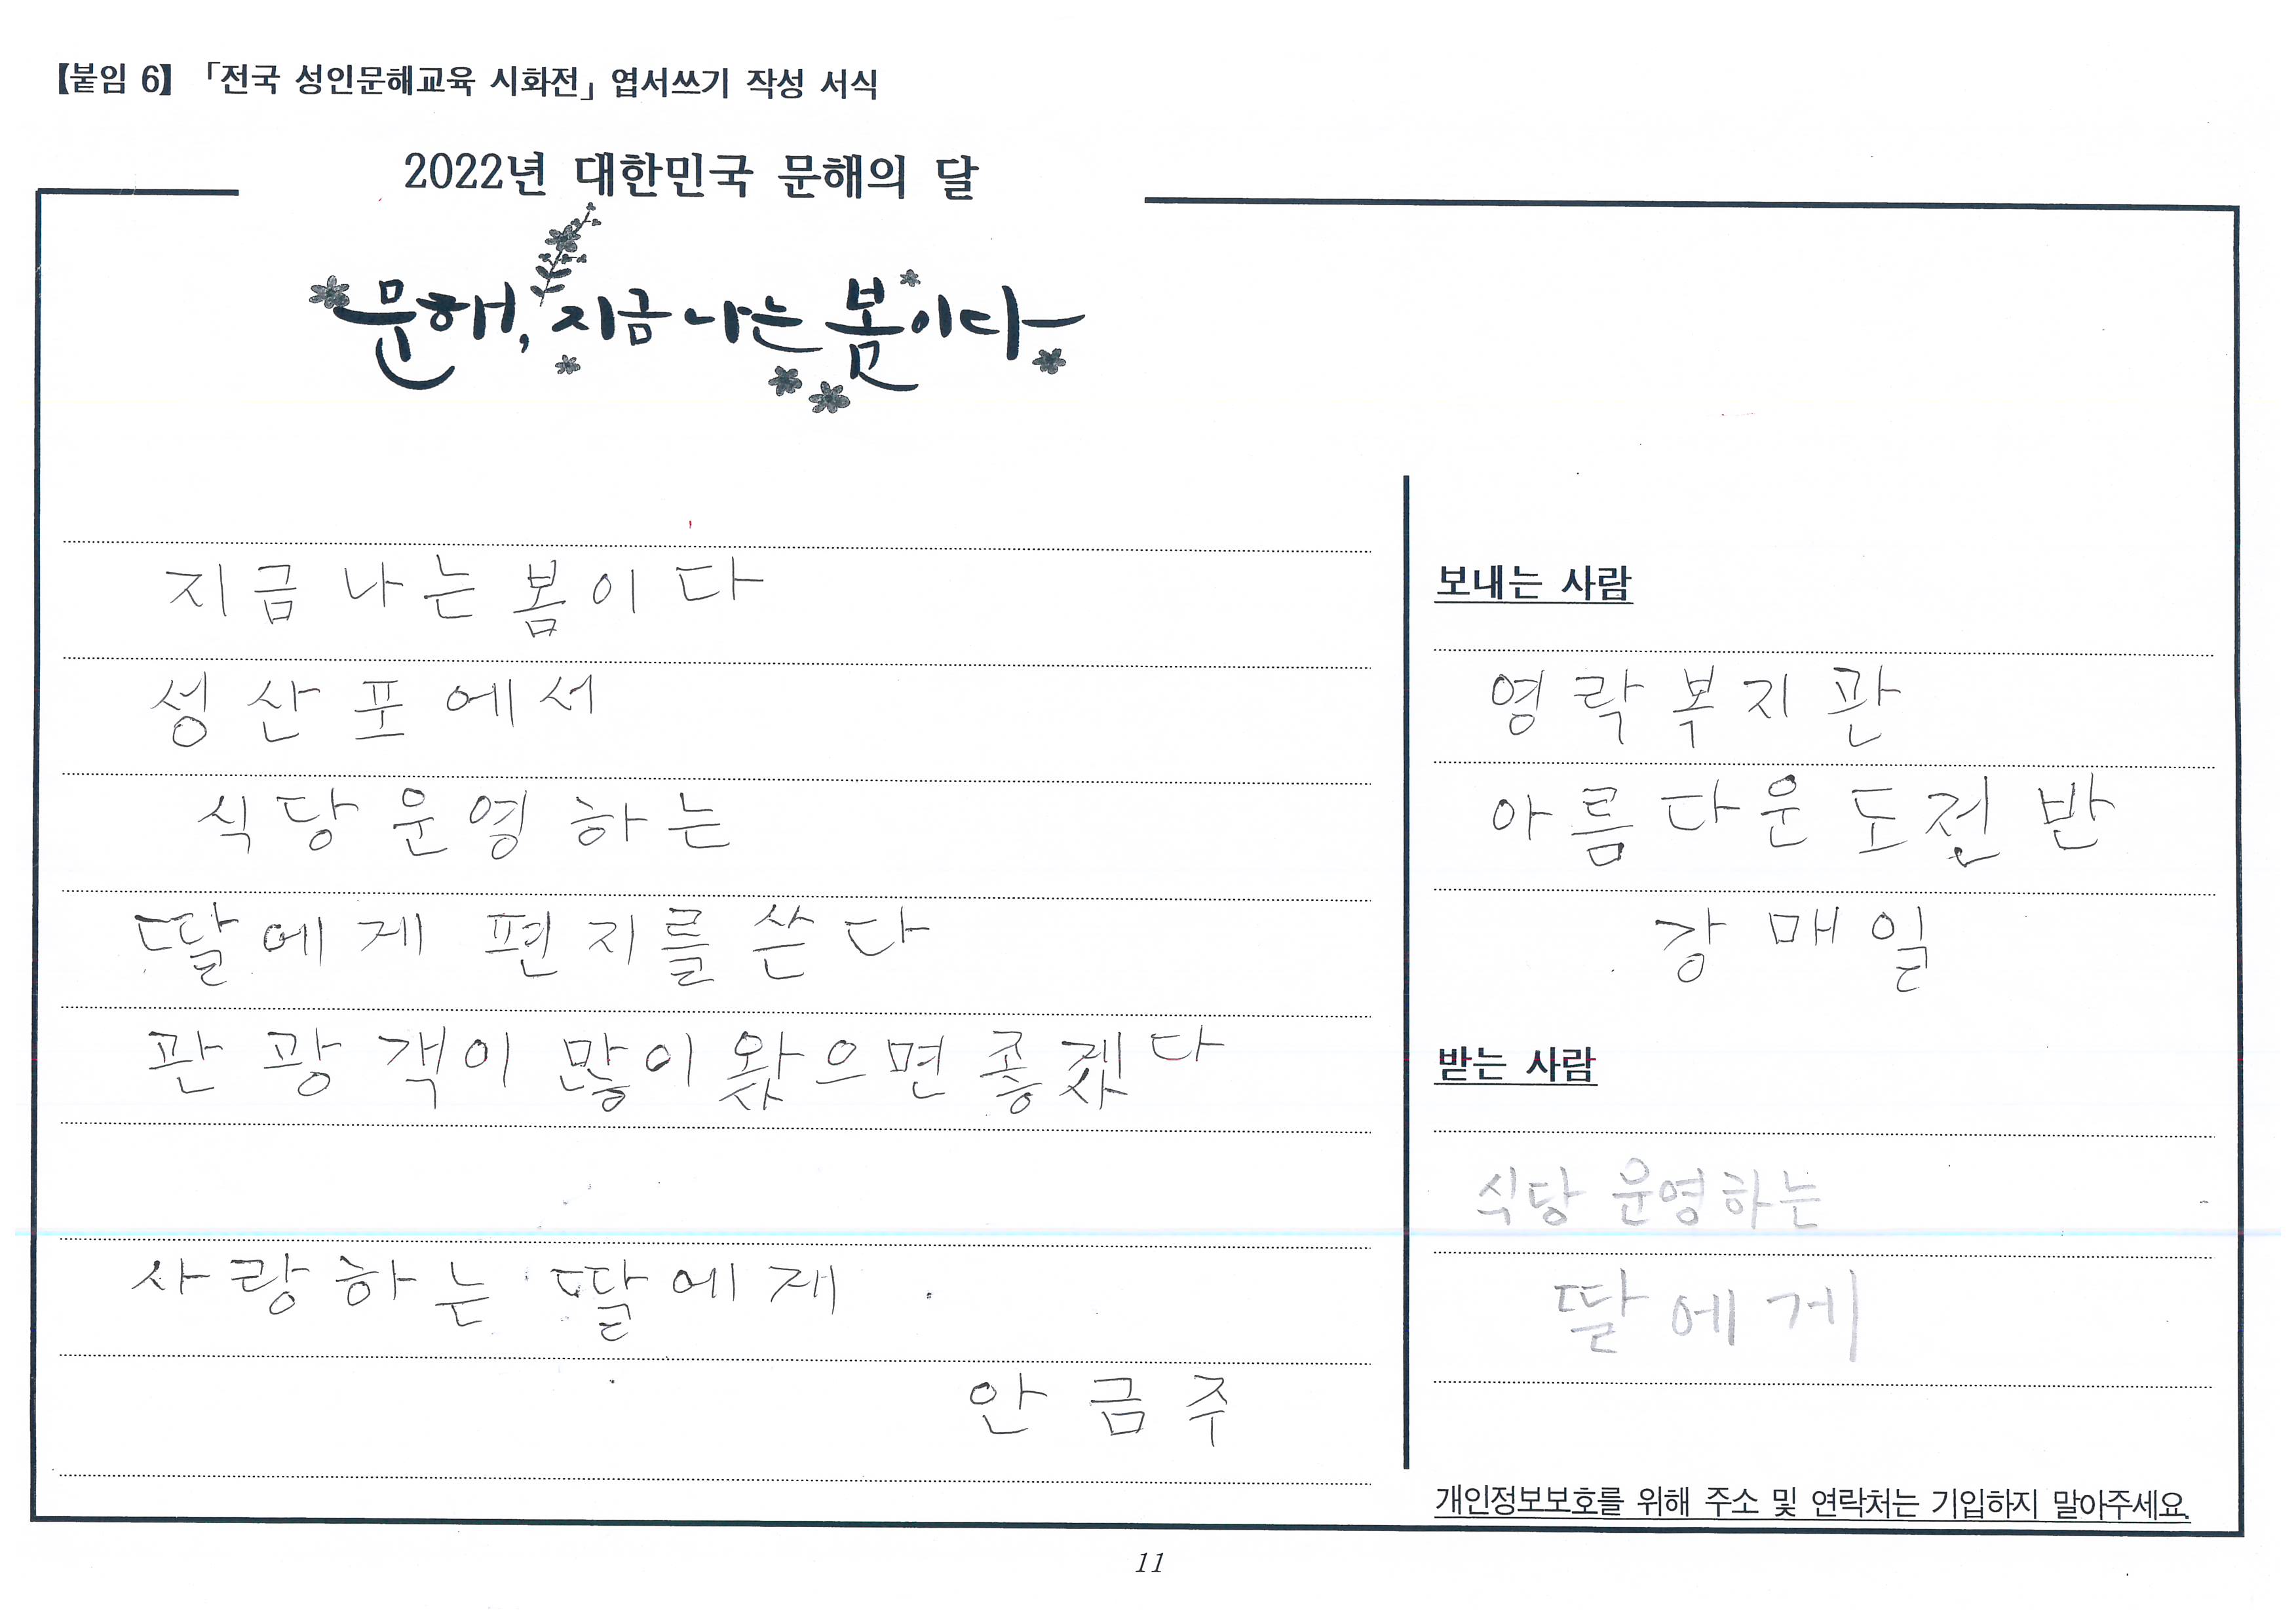 【붙임 6】 「전국 성인문해교육 시화전」 엽서쓰기 작성 서식
2022년 대한민국 문해의 달
문해, 지금 나는 봄이다
지금 나는 봄이다
성산포에서
식당 운영하는
딸에게 편지를 쓴다
관광객이 많이 왔으면 좋겠다
사랑하는 딸에게
안금주
보내는 사람
영락복지관
아름다운 도전반
강매일
받는 사람
식당 운영하는
딸에게
개인정보보호를 위해 주소 및 연락처는 기입하지 말아주세요.
11